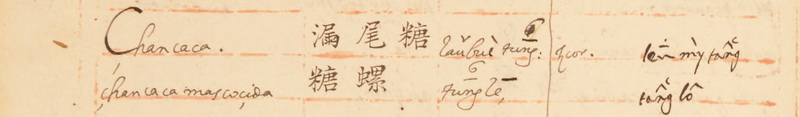 Chancaca. 漏尾糖 laǔbuè tung: leú mỳ tâng
chancaca mascoçida 糖螺 tung lê, tâng lô